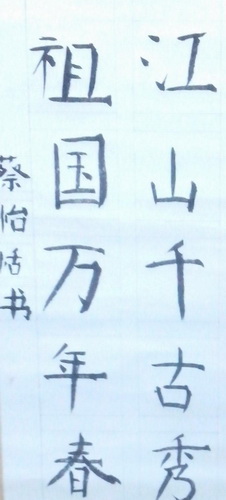 江山千古秀
祖国万年春
蔡怡恬书